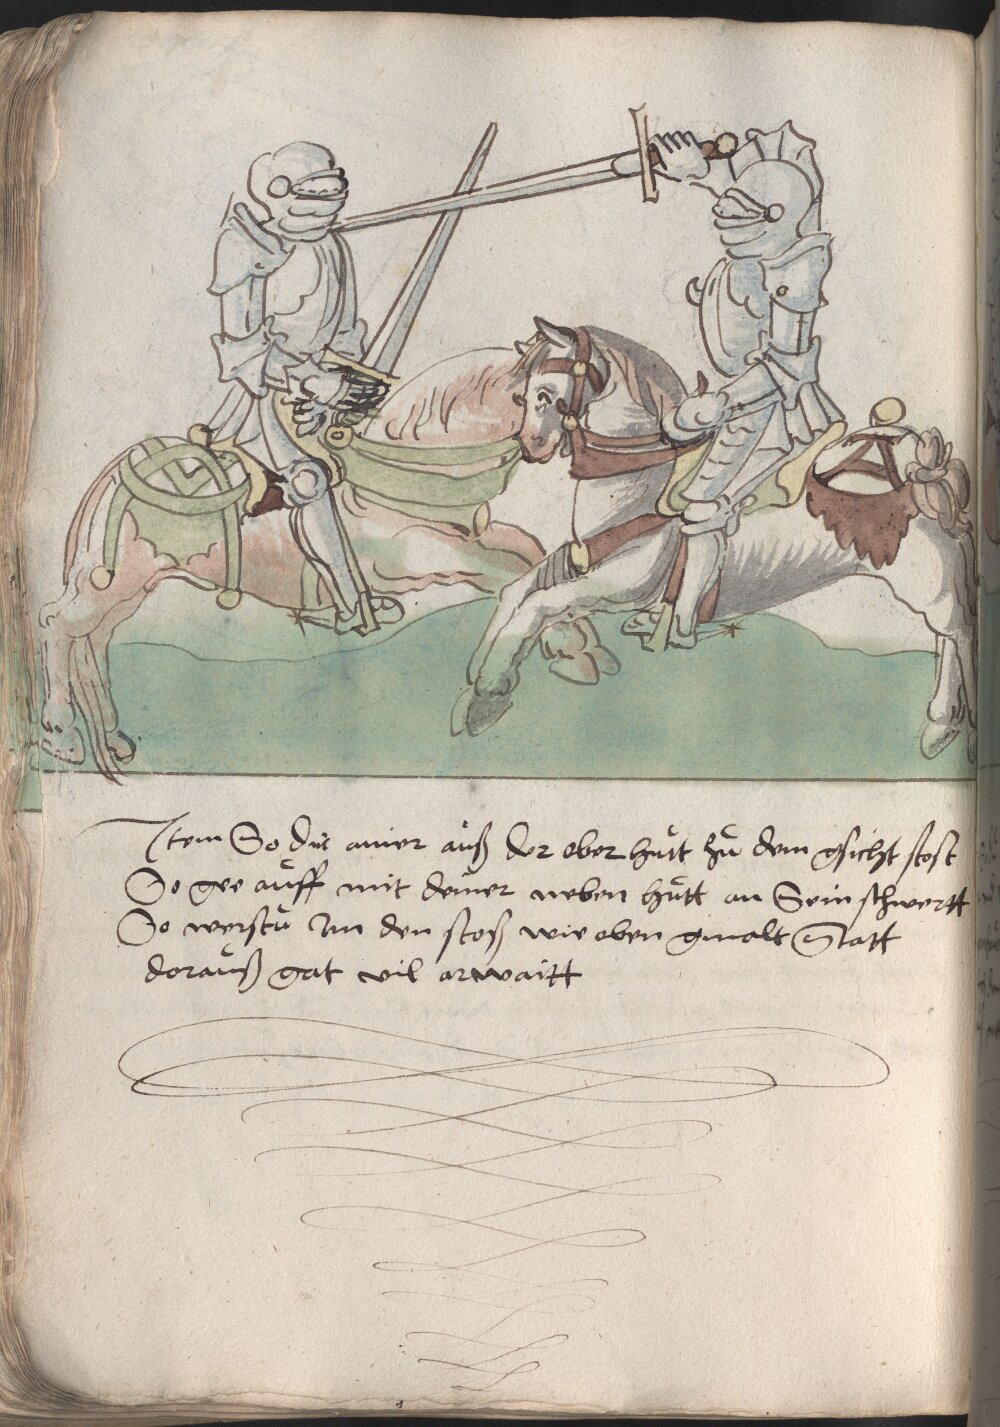 Item So dir ainer auß der ober hůtt zu dem gsicht stost
So gee auff mit deiner neben hůtt an Sein schwertt
So werstu Im den stoß wie oben gmalt Statt
dorauß gat vil arwaitt